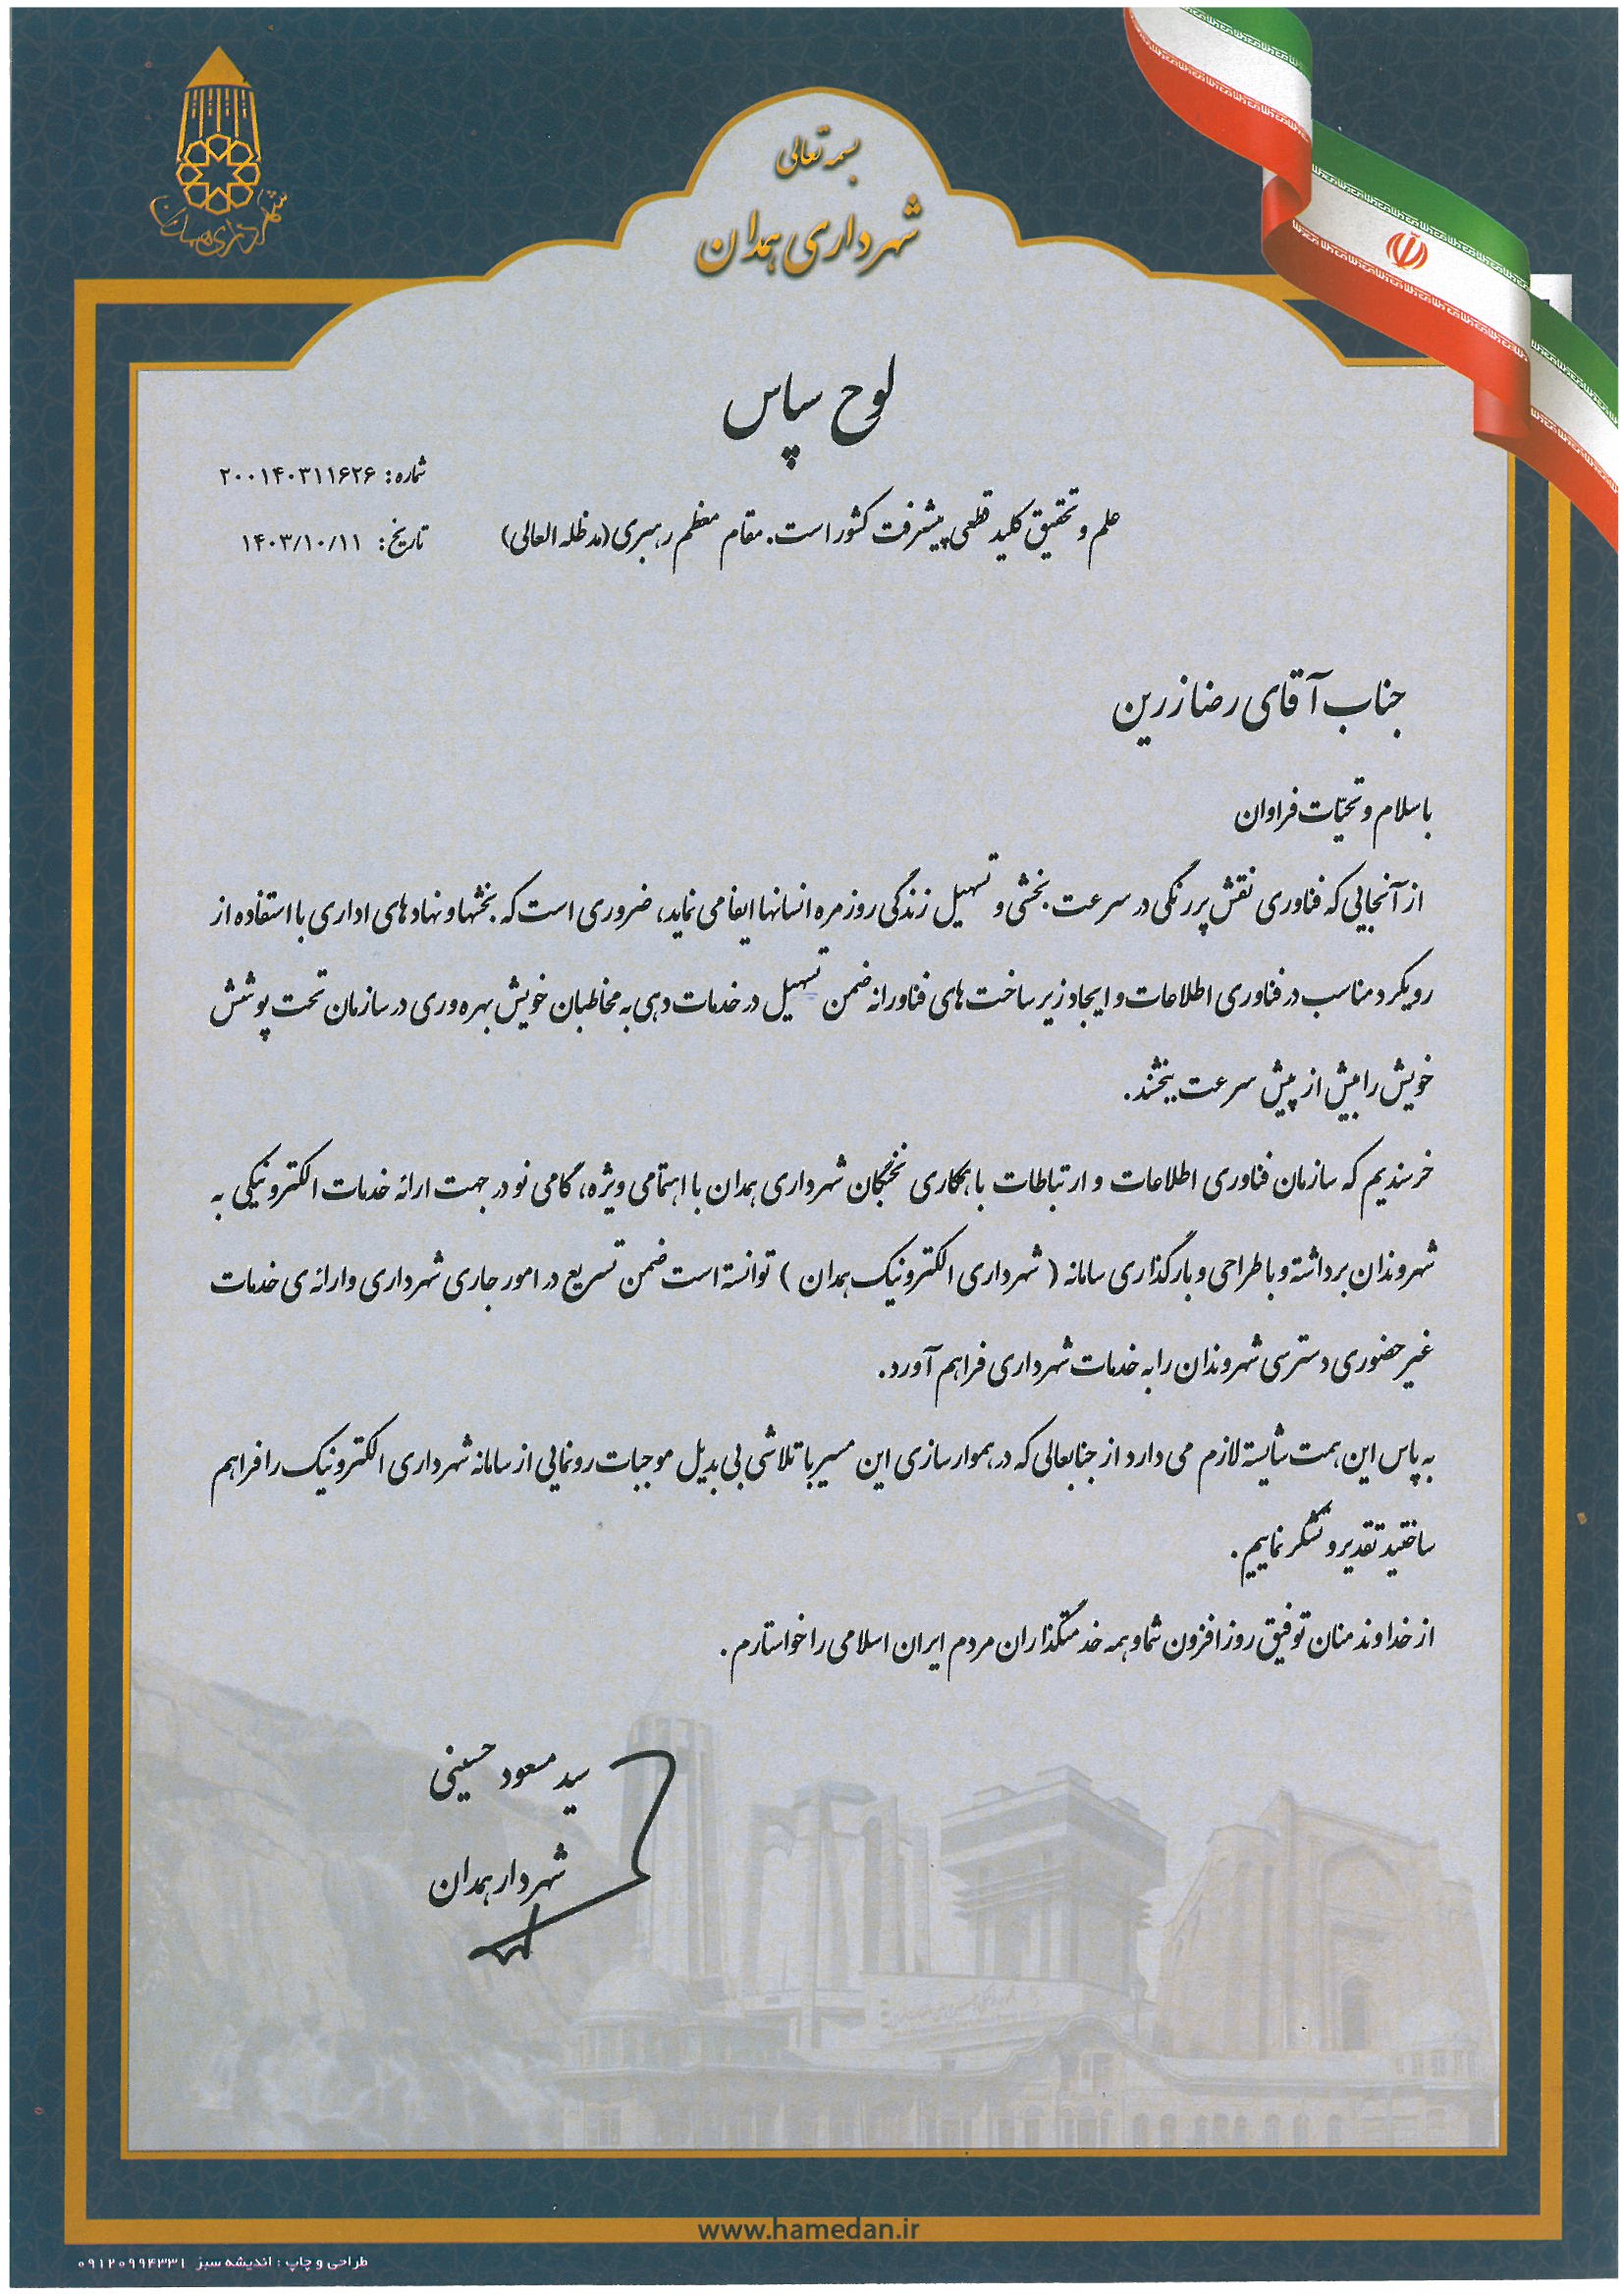 شهرداری همدان
بسمه تعالی
شهرداری همدان
لوح سپاس
شماره: ۲۰۰۱۴۰۳۱۱۶۲۶
علم و تحقیق کلید قطعی پیشرفت کشور است. مقام معظم رهبری (مدظله العالی)
تاریخ: ۱۴۰۳/۱۰/۱۱
جناب آقای رضا زرین
با سلام و تحیّات فراوان
از آنجایی که فناوری نقش پررنگی در سرعت بخشی و تسهیل زندگی روزمره انسانها ایفا می نماید، ضروری است که بخشها و نهادهای اداری با استفاده از
رویکرد مناسب در فناوری اطلاعات و ایجاد زیرساخت های فناورانه ضمن تسهیل در خدمات دهی به مخاطبان خویش بهره وری در سازمان تحت پوشش
خویش را بیش از پیش سرعت بخشند.
خرسندیم که سازمان فناوری اطلاعات و ارتباطات با همکاری نخبگان شهرداری همدان با اهتمامی ویژه، گامی نو در جهت ارائه خدمات الکترونیکی به
شهروندان برداشته و با طراحی و بارگذاری سامانه ( شهرداری الکترونیک همدان ) توانسته است ضمن تسریع در امور جاری شهرداری و ارائه ی خدمات
غیر حضوری دسترسی شهروندان را به خدمات شهرداری فراهم آورد.
به پاس این همت شایسته لازم می دارد از جنابعالی که در هموارسازی این مسیر با تلاشی بی بدیل موجبات رونمایی از سامانه شهرداری الکترونیک را فراهم
ساختید تقدیر و تشکر نماییم.
از خداوند منان توفیق روزافزون شما و همه خدمتگذاران مردم ایران اسلامی را خواستارم.
سید مسعود حسینی
شهردار همدان
www.hamedan.ir
طراحی و چاپ : اندیشه سبز ۰۹۱۲۰۹۹۴۳۳۱